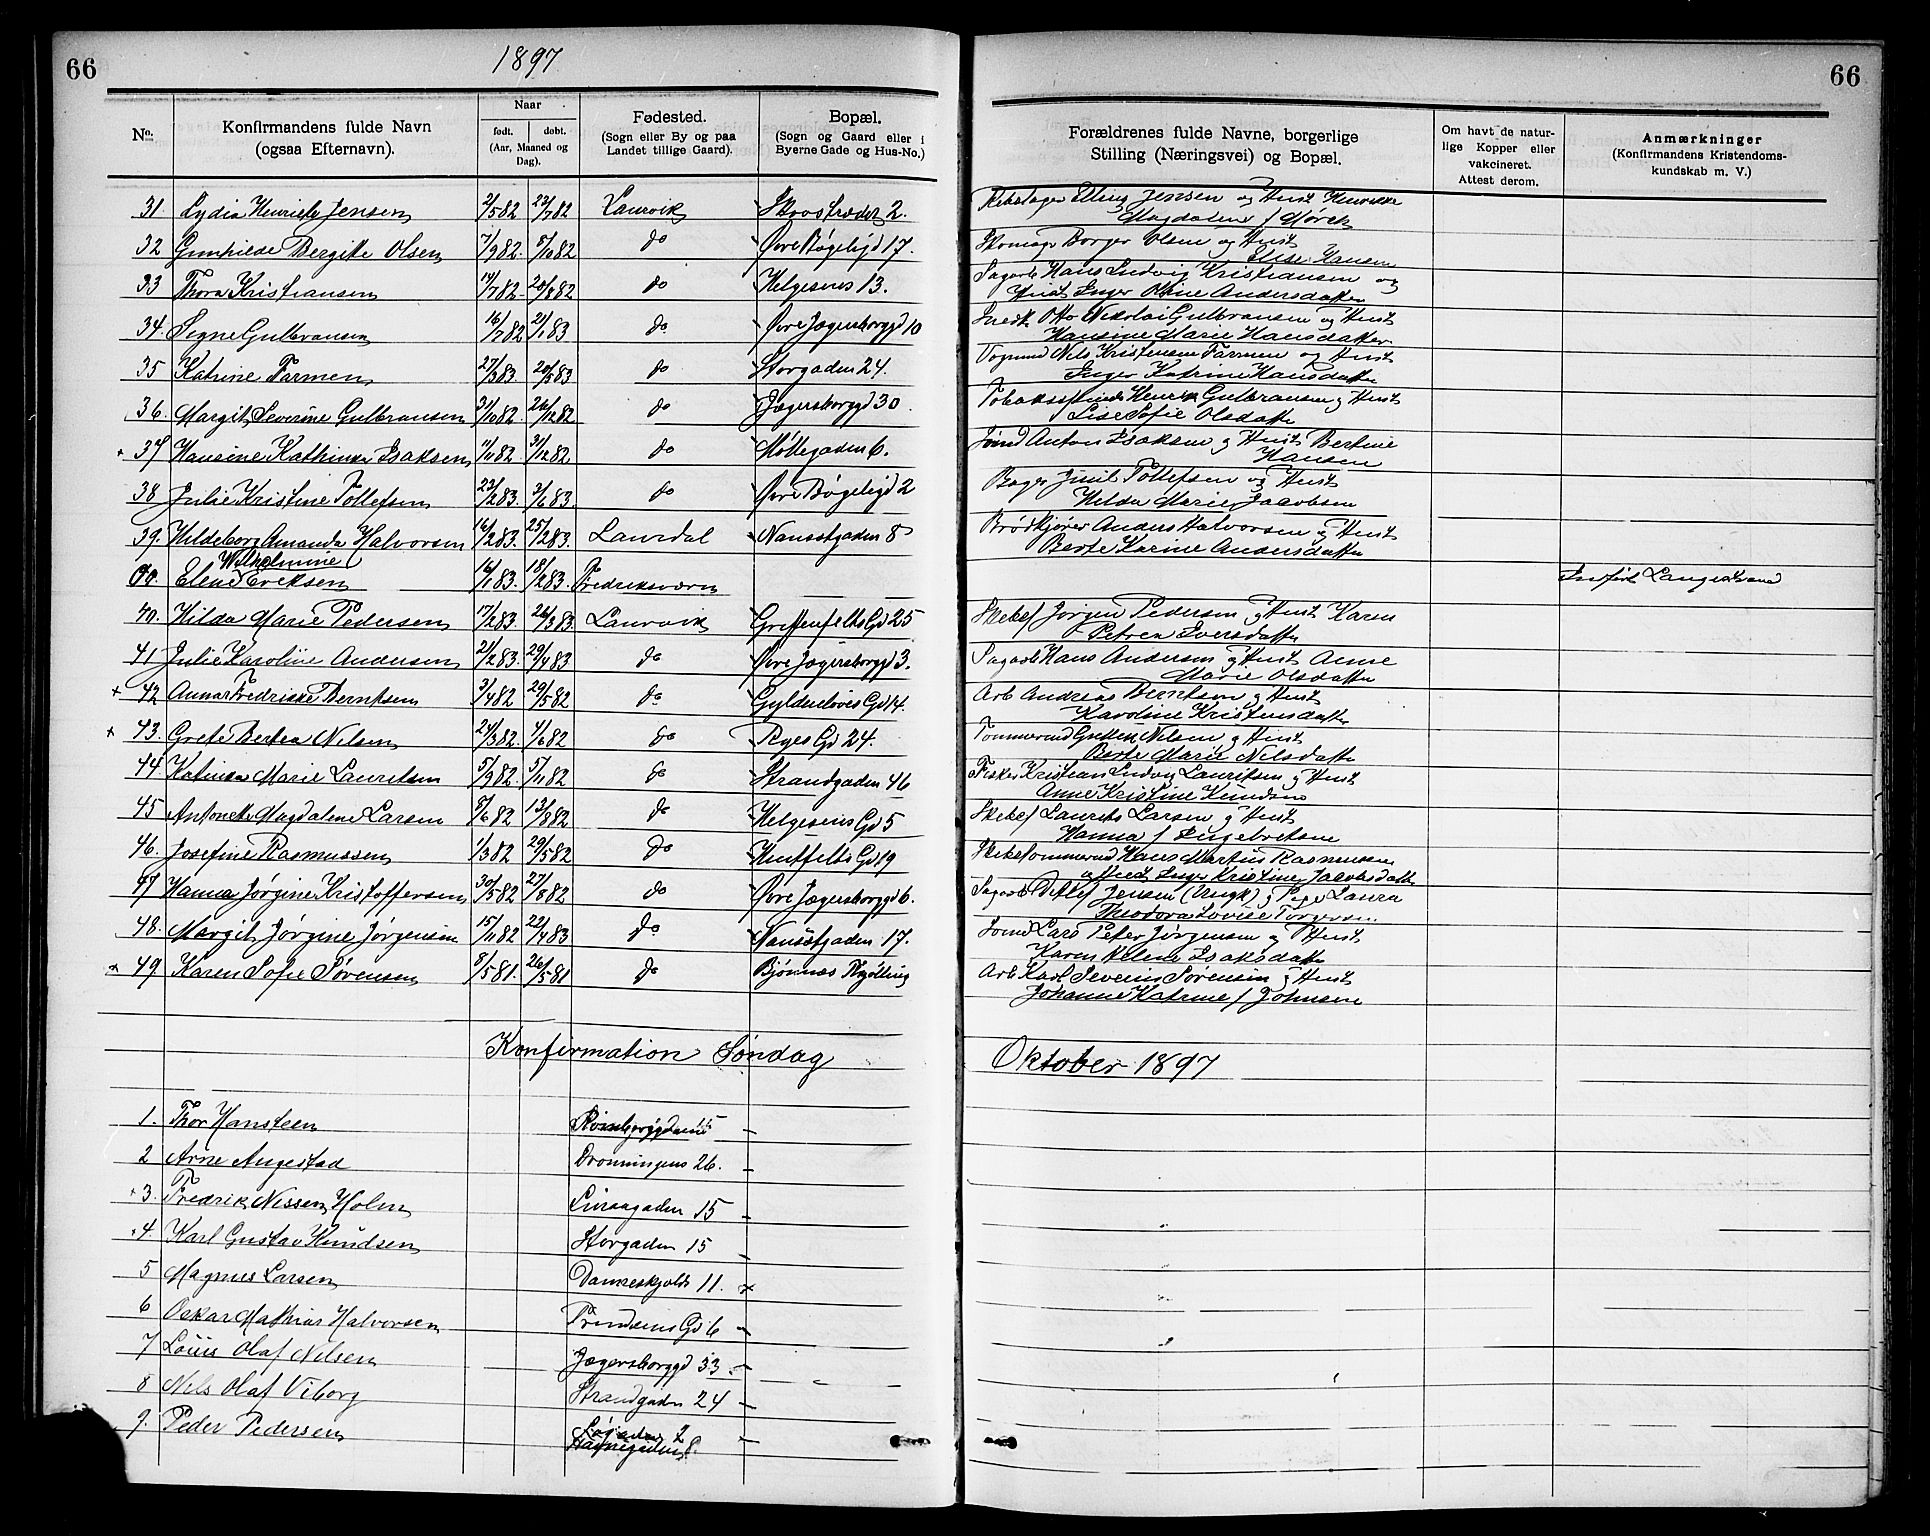 66
1897
66
No.
Konfirmandens fulde Navn
(ogsaa Efternavn).
Naar
født.
døbt.
(Aar, Maaned og Dag).
Fødested.
(Sogn eller By og paa
Landet tillige Gaard).
Bopæl.
(Sogn og Gaard eller i
Byerne Gade og Hus-No.)
Forældrenes fulde Navne, borgerlige
Stilling (Næringsvei) og Bopæl.
Om havt de natur-
lige Kopper eller
vakcineret.
Attest derom.
Anmærkninger
(Konfirmandens Kristendoms-
kundskab m. V.)
31 Lydia Henriette Jensen 2/5 82 22/7 82 Laurvik 2. Elling Jensen og Hust Henrikke
Magdalene f Mørch
32 Gunhilde Bergitte Olsen 7/9 82 8/10 82 do Øvre Bøgeligd 17. Skomager Borger Olsen og Hust
Elise Hansen
33 Thora Kristiansen 14/7 82 20/8 82 do Helgesens 13. Sagarb Hans Ludvig Kristiansen og
Hust Inger Oline Andersdatter
34. Signe Gulbransen 16/7 82 21/1 83 do Øvre Jægersborggd 10 Otto Nikolai Gulbransen og Hust
Hansine Marie Hansdatter
35 Katrine Farmen 27/3 83 20/5 83 do Storgaden 24. Vognmd Nils Kristensen Farmen og Hust
Inger Katrine Hansdatter
36. Margit Severine Gulbransen 31/10 82 26/12 82 do Jægersborggd 30 Henrik Gulbransen og Hust
Lise Sofie Olsdatter
+ 37 Hansine Kathinka Isaksen 11/11 82 31/12 82 do Møllegaden 6. Sømd Anton Isaksen og Hust Bertine
Hansen
38 Julie Kristine Tollefsen 22/2 83. 3/6 83 do Øvre Bøgeligd 2 Bager Tollefsen og Hust
Hilda Marie Jacobsen
39. Hildeborg Amanda Halvorsen 16/2 83. 25/2 83. Laurdal Nansetgaden 8 Brødkjører Anders Halvorsen og Hust
Berte Karine Andersdatter
Wilhelmine
Elene Eriksen 16/1 83. 18/2 83. Fredriksværn — Indført Langestrand
40. Hilda Marie Pedersen 17/2 83. 26/3 83. Laurvik Griffenfelts Gd 25 Jørgen Pedersen og Hust Karen
Petrea Iversdatter
41 Julie Karoline Andersen 21/2 83. 29/4 83 do Øvre Jægersborggd 3. Sagarb Hans Andersen og Hust Anne
Marie Olsdatter
+ 42 Anna Fredrikke Berntsen 3/4 82 29/5 82 do Gyldenløves Gd 14. Arb Andreas Berntsen og Hust
Karoline Kristensdatter
+ 43. Grete Bertea Nilsen 24/3 82. 4/6 82 do Ryes Gd 24. Tømmermd Nilsen og Hust
Berte Marie Nilsdatter
44 Katinka Marie Lauritsen 5/9 82. 5/11 82 do Strandgaden 46 Fisker Kristian Ludvig Lauritsen og Hust
Anne Kristine Knudsen
45 Antonette Magdalene Larsen 8/6 82 13/8 82 do Helgesens Gd 5 Laurits Larsen og Hust
Hanna f Engebretsen
46. Josefine Rasmussen 1/3 82 29/5 82 do Huitfelts Gd 19 Hans Martin Rasmussen
og Hust Inger Kristine Jacobsdatter
47 Hanna Jørgine Kristoffersen 30/5 82 27/8 82 do Øvre Jægersborggd 6. Sagarb Detlef Jensen (Ungk) og Pige Laura
Theodora Lovise Torgersen
48. Margit Jørgine Jørgensen 15/11 82 22/4 83 do Nansetgaden 17. Sømd Lars Peter Jørgensen og Hust
Karen Helene Isaksdatter
+ 49 Karen Sofie Sørensen 8/5 81. 26/5 81 do Bjønnæs Arb Karl Severin Sørensen og Hust
Johanne Katrine f Johnsen
Konfirmation Søndag Oktober 1897
1. Thor Hansteen —
2 Arne Augestad Dronningens 26. —
+3. Fredrik Nissen Holm Linaagaden 15 —
4. Karl Gustav Knudsen Storgaden 15 —
5 Magnus Larsen Danneskjolds 11.
6 Oskar Mathias Halvorsen Frendsens Gd 6 —
7 Louis Olaf Nilsen Jægersborggd 33. —
8 Nils Olaf Viborg Strandgaden 24 —
9. Peder Pedersen Søgaden 2 —
Havnegaden 8.